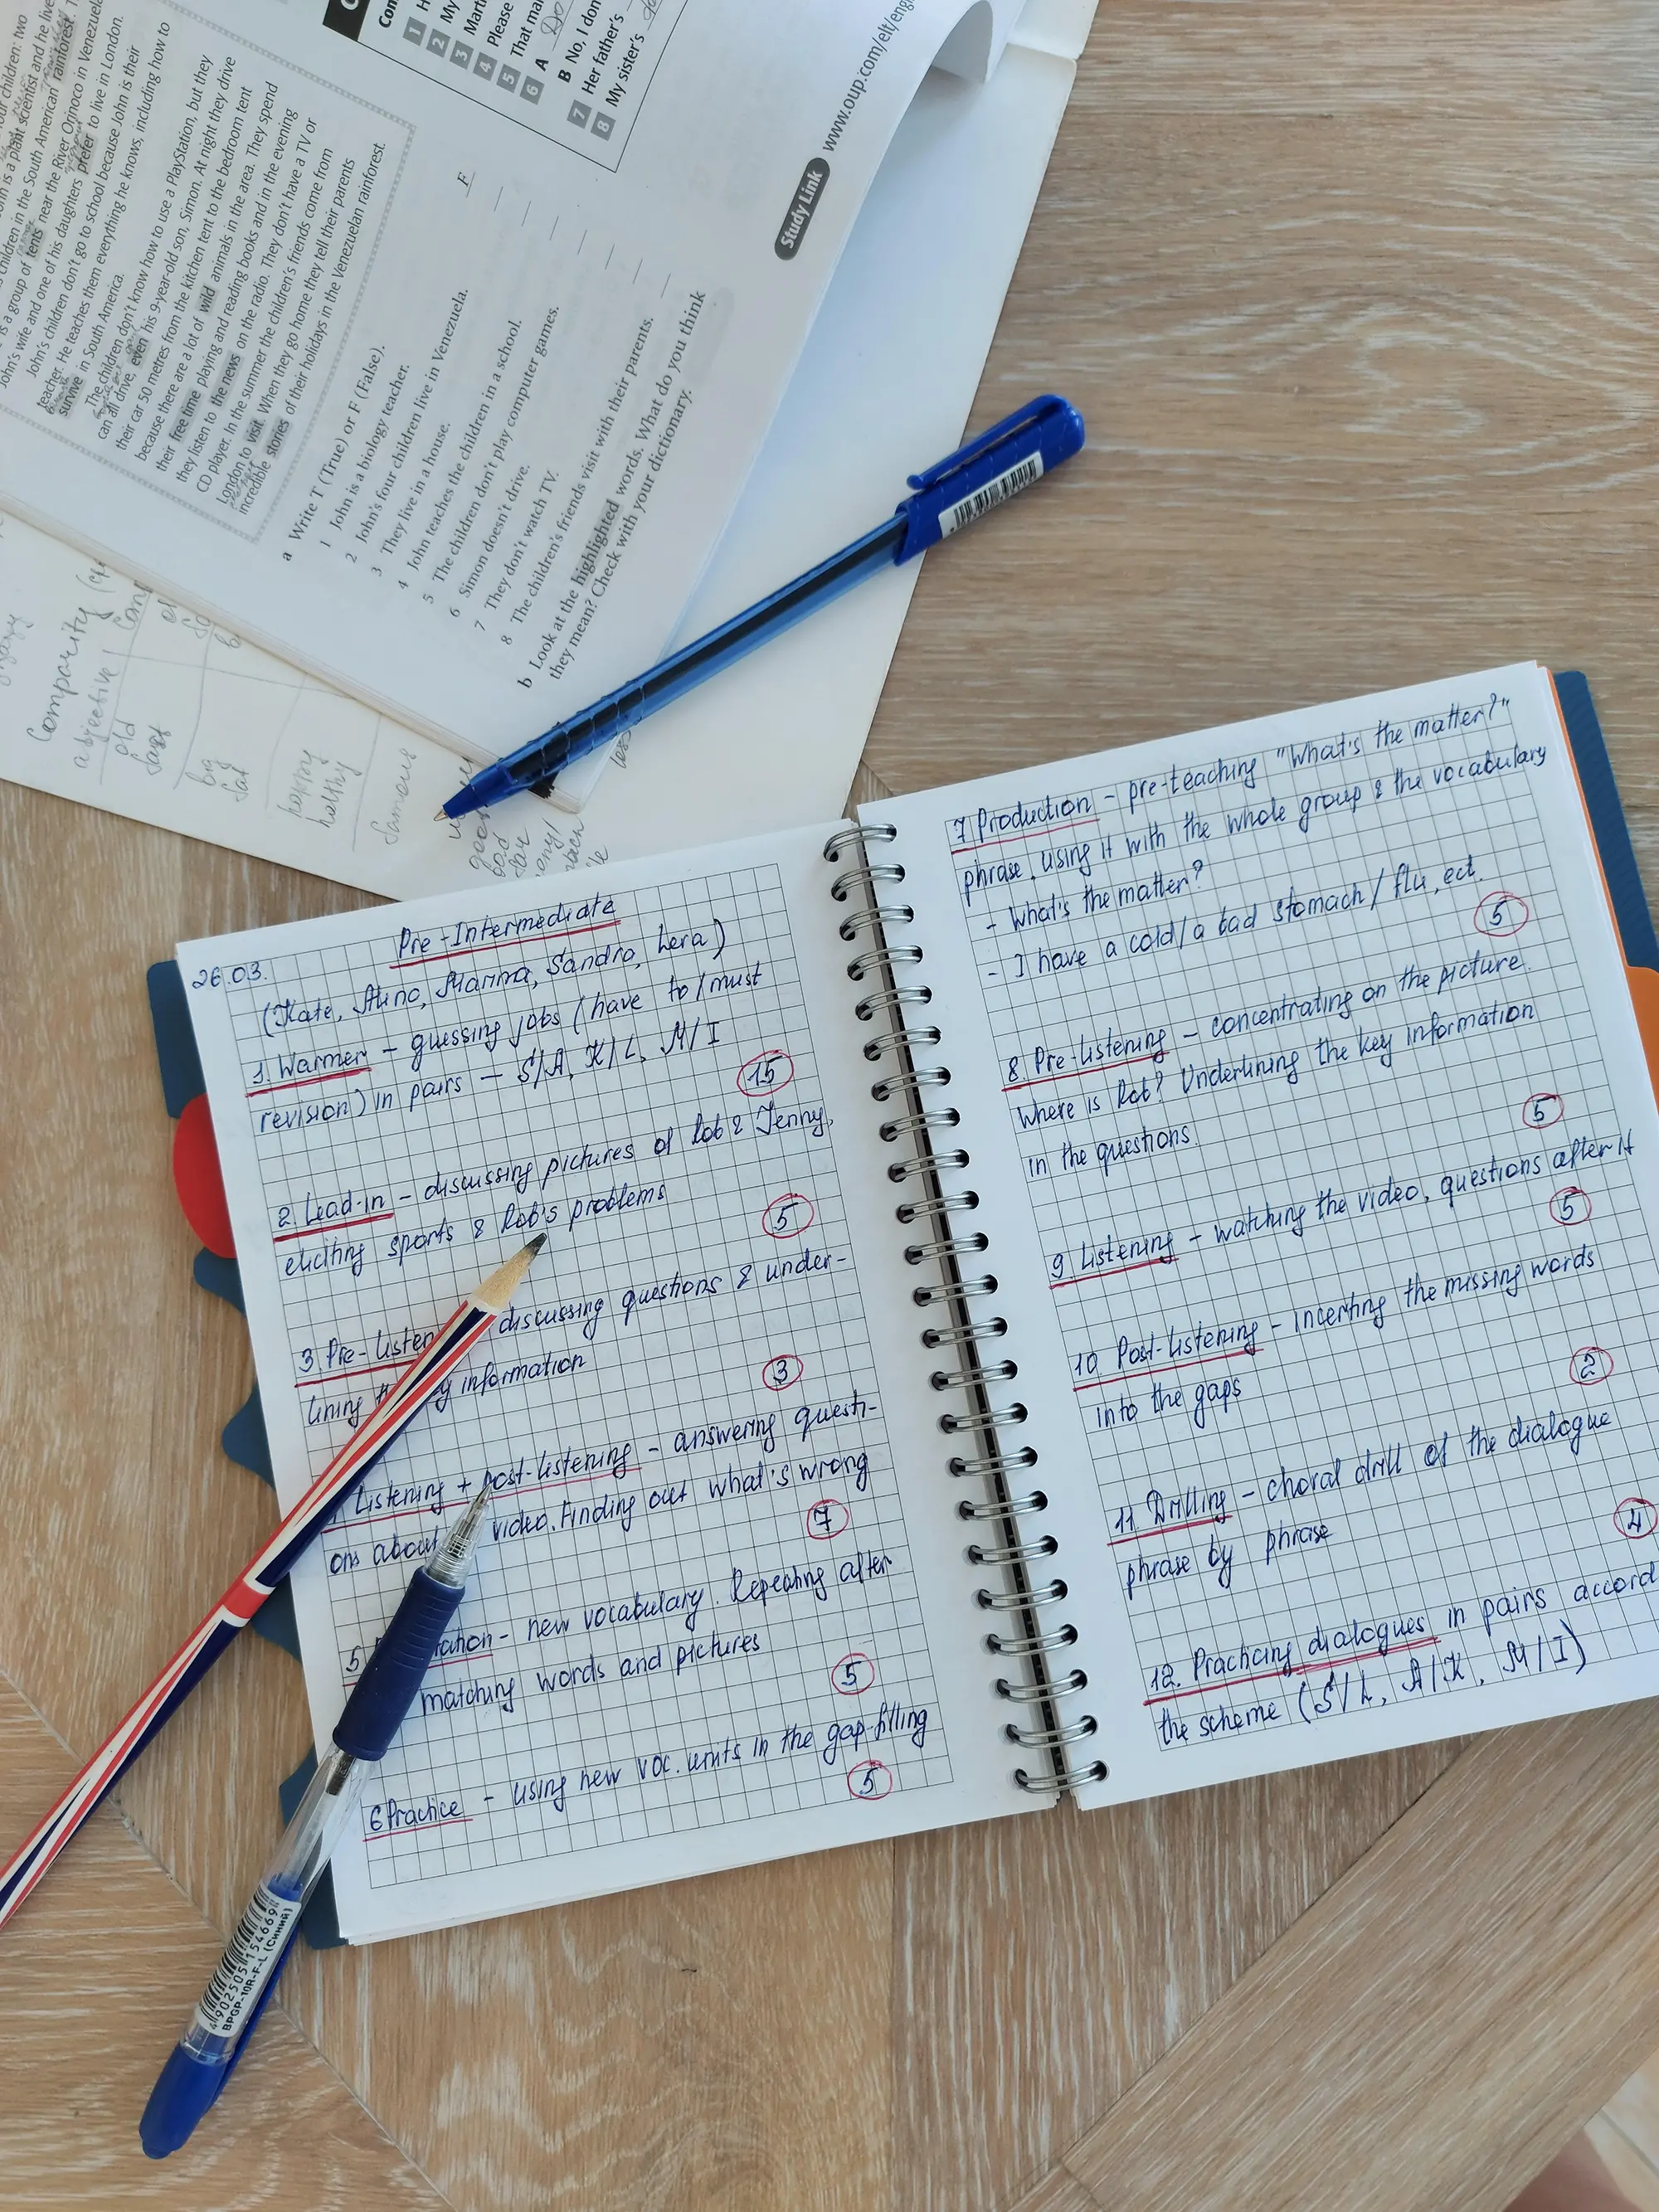 our children: two
is a plant scientist and he live
children in the South American rainforest. T
is a group of tents near the River Orinoco in Venezuela
John's wife and one of his daughters prefer to live in London.
John's children don't go to school because John is their
teacher. He teaches them everything he knows, including how to
survive in South America.
The children don't know how to use a PlayStation, but they
can all drive, even his 9-year-old son, Simon. At night they drive
their car 50 metres from the kitchen tent to the bedroom tent
because there are a lot of wild animals in the area. They spend
their free time playing and reading books and in the evening
they listen to the news on the radio. They don't have a TV or
CD player. In the summer the children's friends come from
London to visit. When they go home they tell their parents
incredible stories of their holidays in the Venezuelan rainforest.
a Write T (True) or F (False).
1 John is a biology teacher. F
2 John's four children live in Venezuela.
3 They live in a house.
4 John teaches the children in a school.
5 The children don't play computer games.
6 Simon doesn't drive.
7 They don't watch TV.
8 The children's friends visit with their parents.
b Look at the highlighted words. What do you think
they mean? Check with your dictionary.
Com
1 H
2 My
3 Mart
4 Please
5 That ma
6 A Do
B No, I don
7 Her father's
8 My sister's
Study Link www.oup.com/elt/eng
adjective
old
fast
big
fat
happy
healthy
famous
good
bad
far
26.03. Pre-Intermediate
(Kate, Alina, Marina, Sandra, Lera)
1. Warmer - guessing jobs (have to/must
revision) in pairs - S/A, K/L, M/I
15
2. Lead-in - discussing pictures of Rob & Jenny,
eliciting sports & Rob's problems
5
3. Pre-listen discussing questions & under-
lining information
3
Listening + post-listening - answering questi-
ons about video. Finding out what's wrong
7
5 - new vocabulary. Repeating after
matching words and pictures
5
6 Practice - using new voc. units in the gap-filling
5
7 Production - pre-teaching "What's the matter?"
phrase, using it with the whole group & the vocabulary
- What's the matter?
- I have a cold/a bad stomach/flu, ect.
5
8. Pre-listening - concentrating on the picture.
Where is Rob? Underlining the key information
in the questions.
5
9. Listening - watching the video, questions after it
5
10. Post-listening - incerting the missing words
into the gaps
2
11. Drilling - choral drill of the dialogue
phrase by phrase
4
12. Practicing dialogues in pairs accord
the scheme (S/L, A/K, M/I)
4902505154669
BPGP-10R-F-L (Синий)